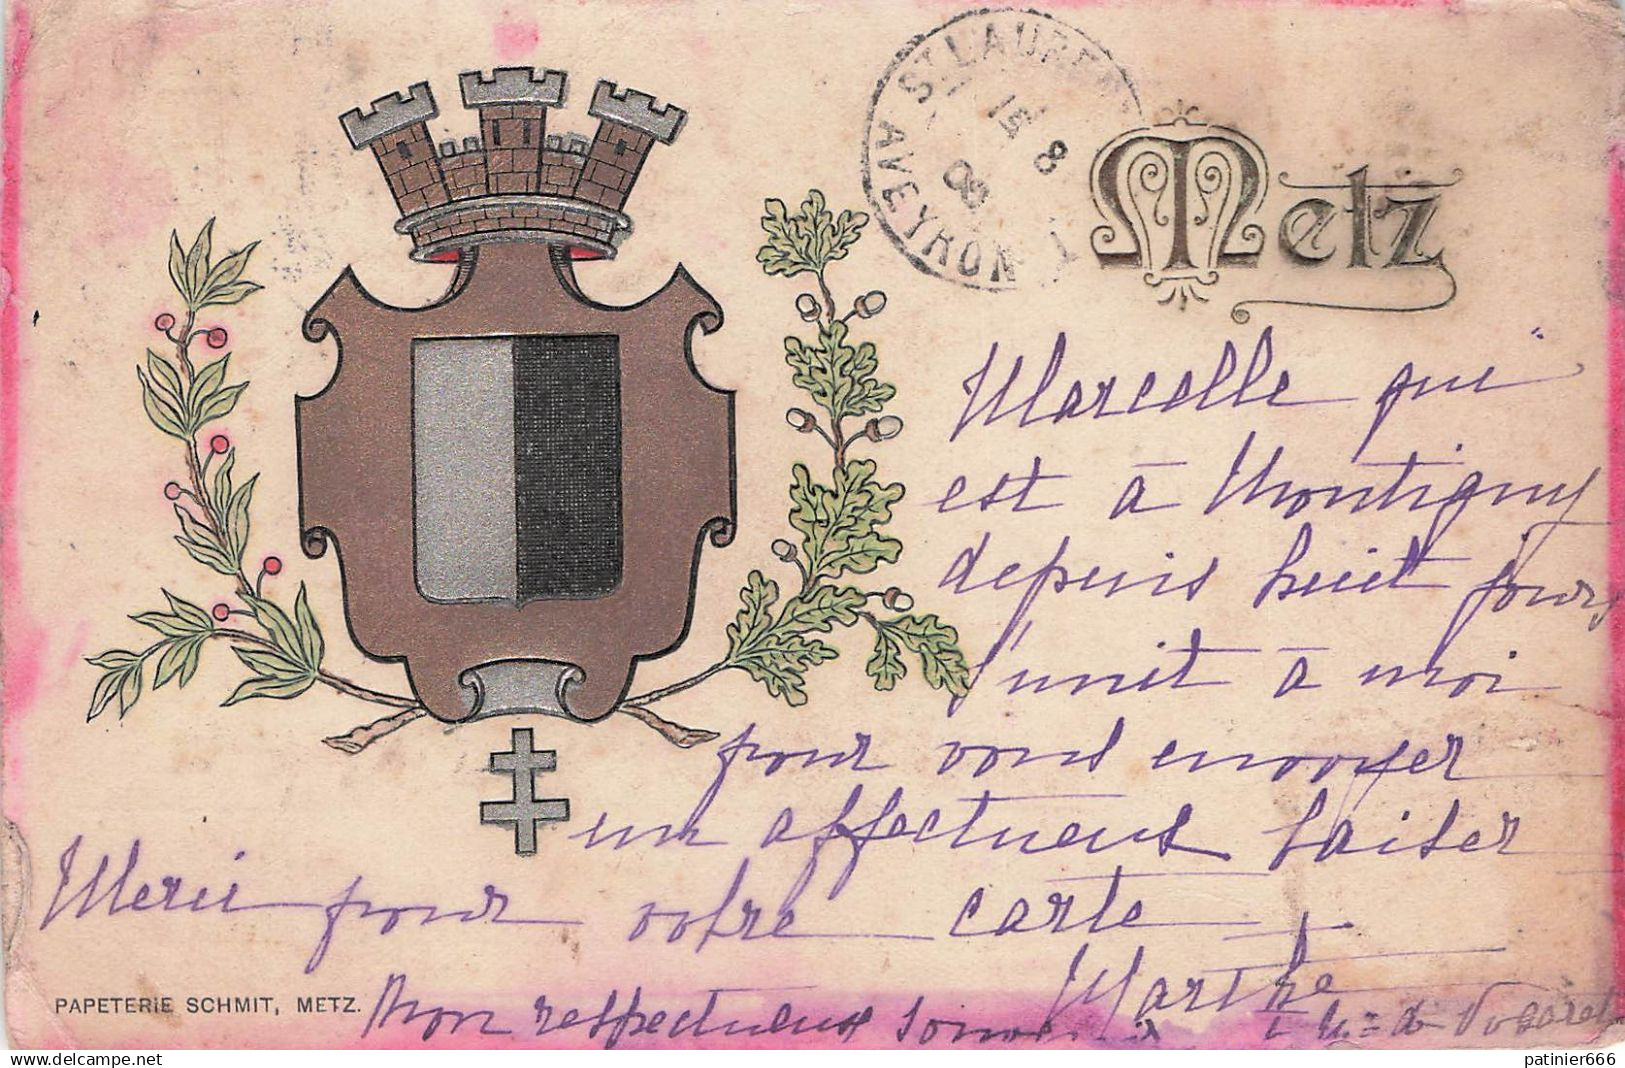 ST LAUREN
AVEYRON
15 8
08
Metz
Marcelle qui
est à Montigny
depuis huit jours
s'unit à moi
pour vous envoyer
un affectueux baiser
Merci pour votre carte
Marthe
Mon respectueux
PAPETERIE SCHMIT, METZ.
delcampe.net
patinier666